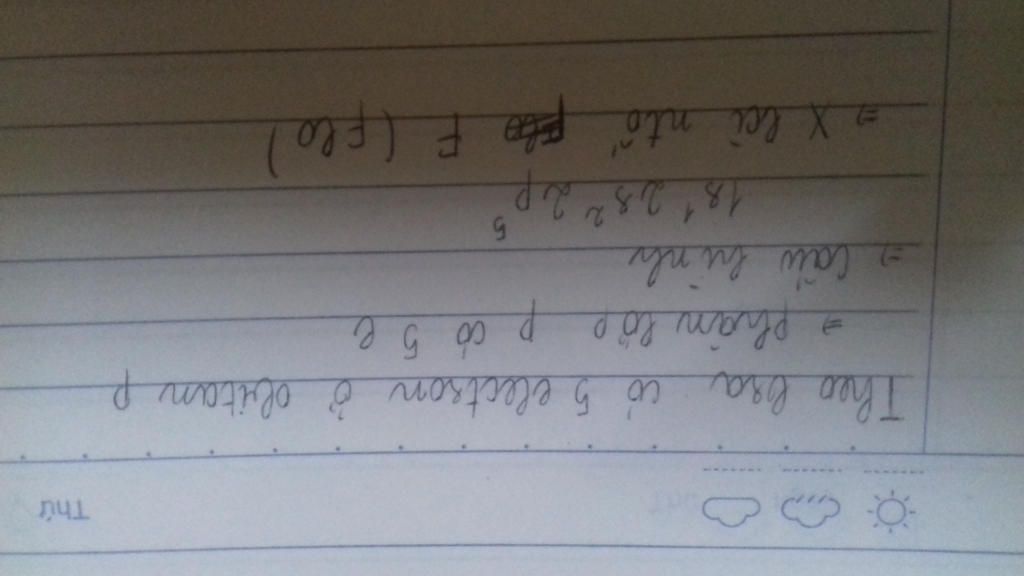 Thứ
Theo bra có 5 electron ở obitan p
⇒ phân lớp p có 5 e
⇒ Cấu hình
1s¹ 2s² 2p⁵
⇒ X là ntố F (Flo)